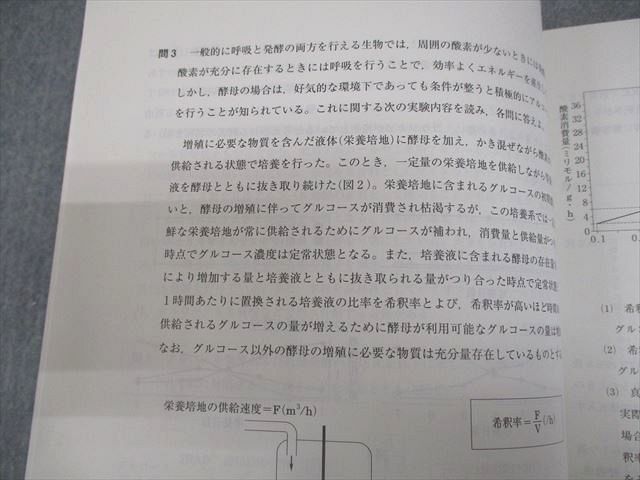 問3 一般的に呼吸と発酵の両方を行える生物では，周囲の酸素が少ないときには
酸素が充分に存在するときには呼吸を行うことで，効率よくエネルギーを
しかし，酵母の場合は，好気的な環境下であっても条件が整うと積極的にアルコ
を行うことが知られている。これに関する次の実験内容を読み，各問に答えよ。
増殖に必要な物質を含んだ液体(栄養培地)に酵母を加え，かき混ぜながら酸素
供給される状態で培養を行った。このとき，一定量の栄養培地を供給しながら
液を酵母とともに抜き取り続けた(図2)。栄養培地に含まれるグルコースの初
いと，酵母の増殖に伴ってグルコースが消費され枯渇するが，この培養系では一
鮮な栄養培地が常に供給されるためにグルコースが補われ，消費量と供給量が
時点でグルコース濃度は定常状態となる。また，培養液に含まれる酵母の存在
により増加する量と培養液とともに抜き取られる量がつり合った時点で定常状
1時間あたりに置換される培養液の比率を希釈率とよび，希釈率が高いほど時間
供給されるグルコースの量が増えるために酵母が利用可能なグルコースの量は
なお，グルコース以外の酵母の増殖に必要な物質は充分量存在しているものとす
栄養培地の供給速度＝F(m³/h)
希釈率＝F/V(/h)
酸素消費量(ミリモル/g・h)
36
32
28
24
20
16
12
8
4
0
0.1
(1) 希釈
グル
(2) 希
グル
(3) 真
実際
場合
釈率